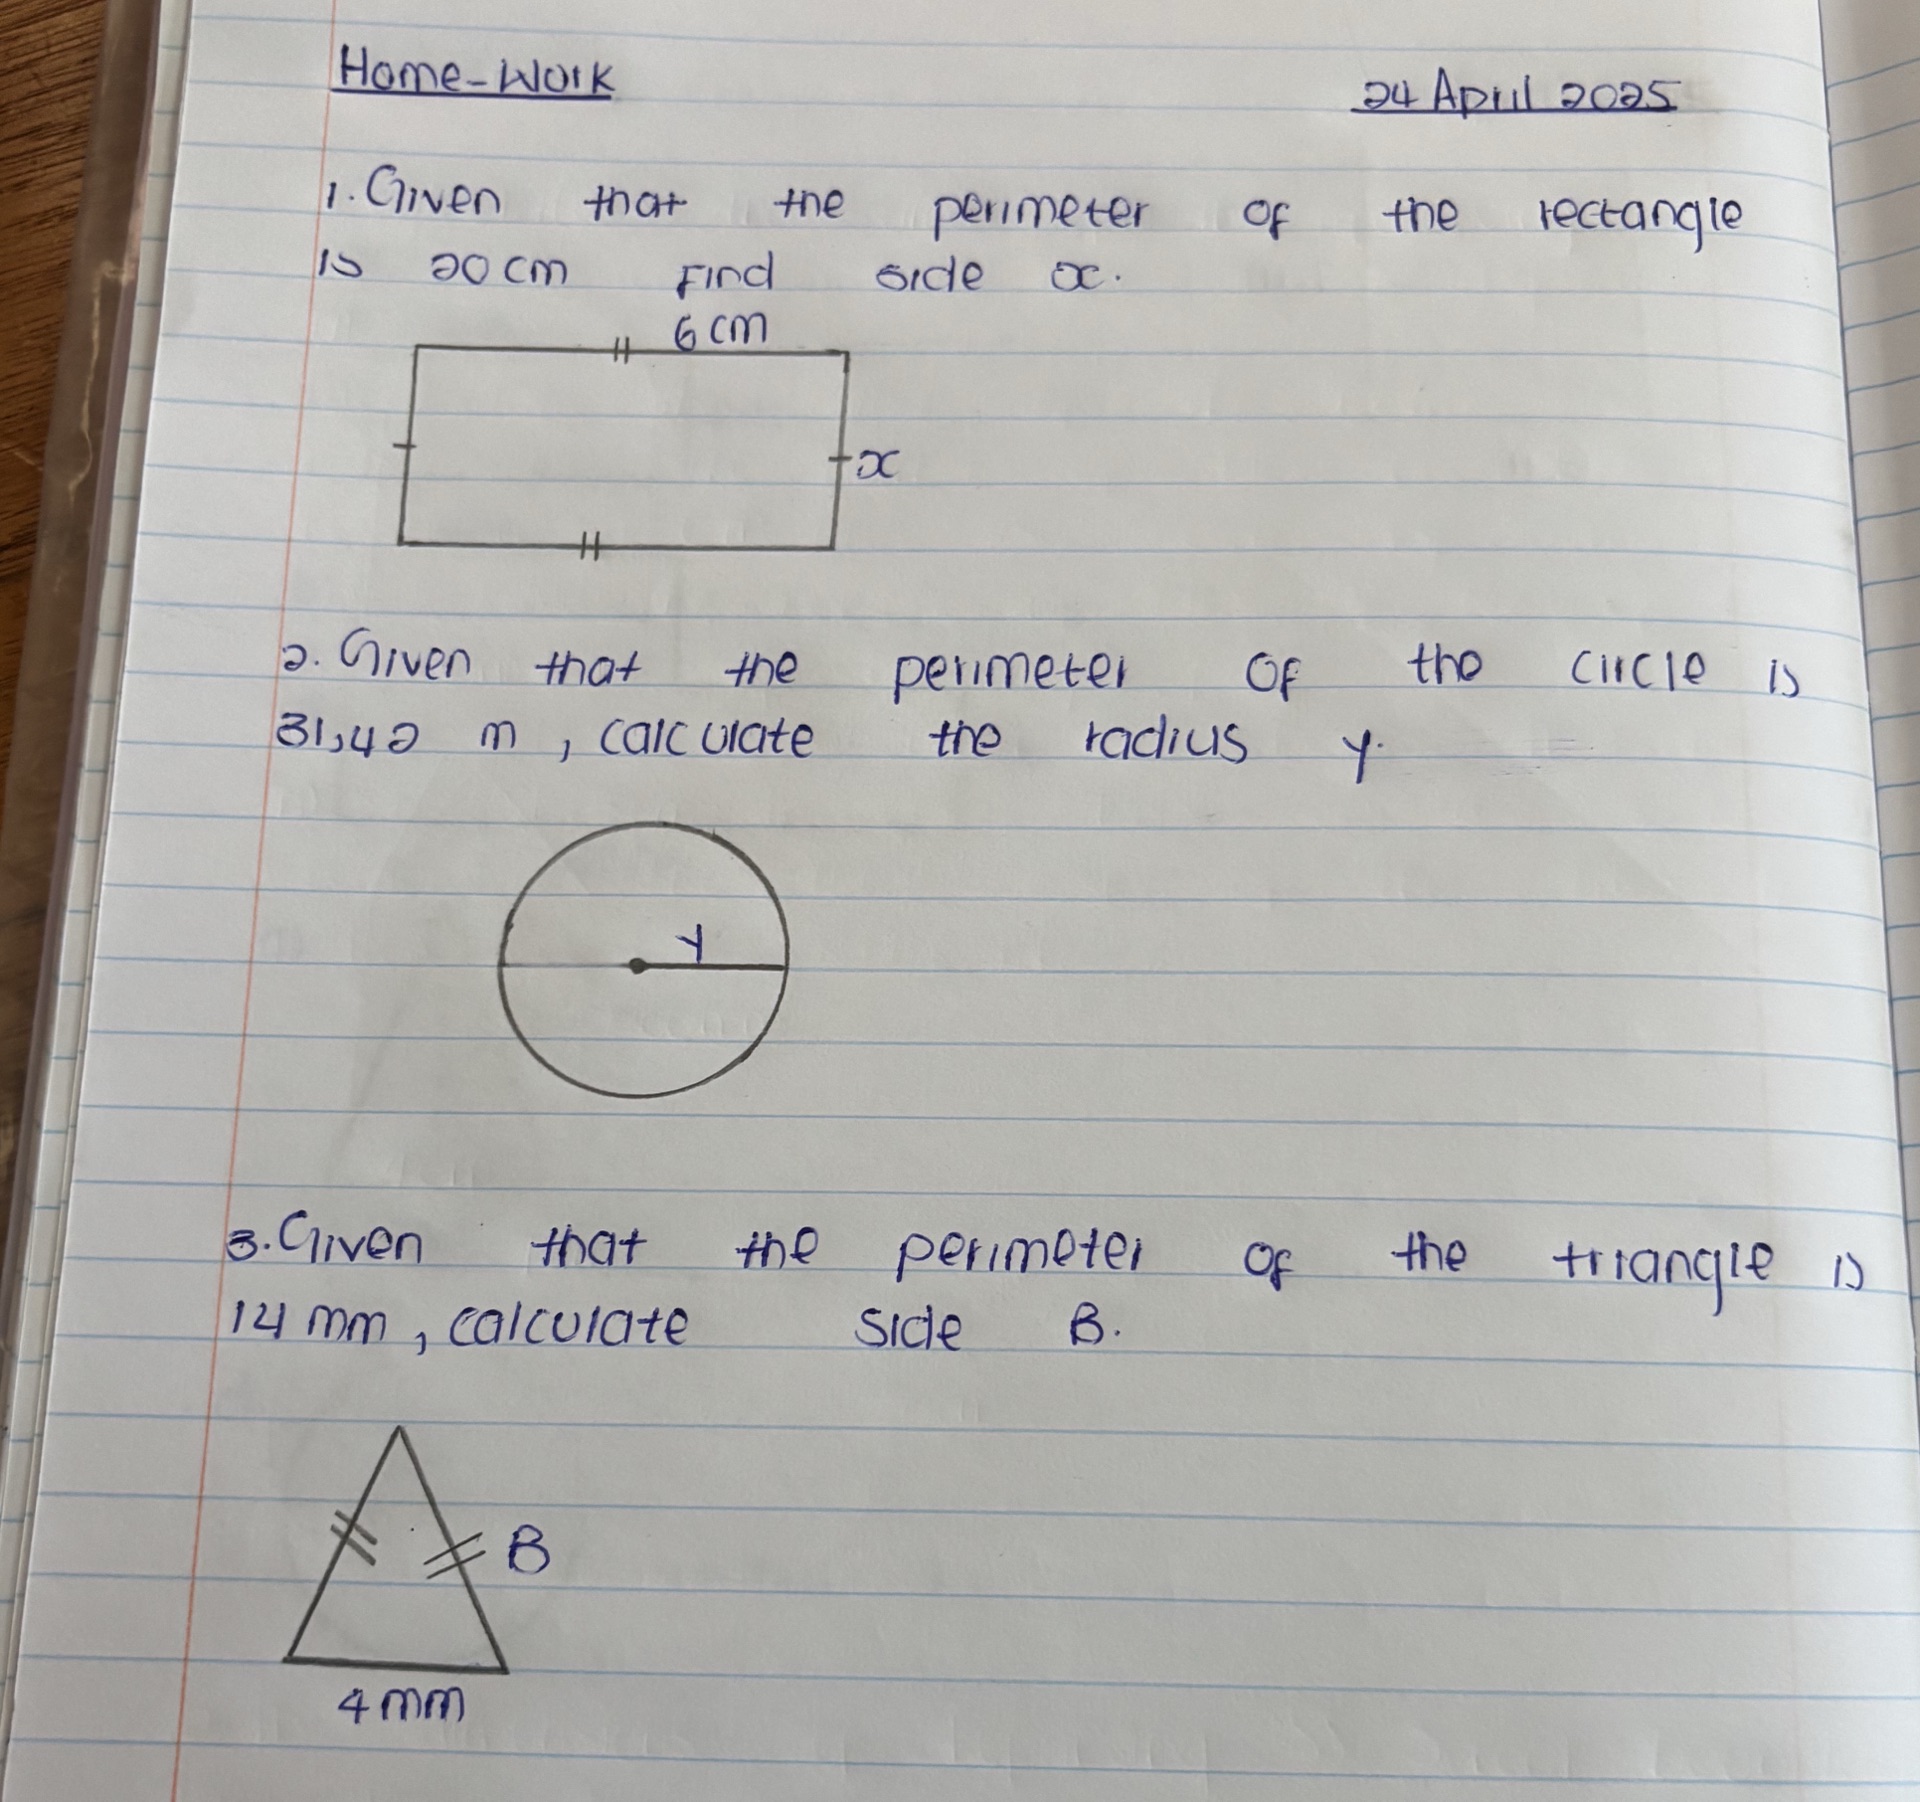 Home-Work
24 April 2025
1. Given that the perimeter of the rectangle
is 20 cm Find side x.
6 cm
x
2. Given that the perimeter of the circle is
31,42 m, calculate the radius y.
y
3. Given that the perimeter of the triangle is
14 mm, calculate side B.
B
4 mm